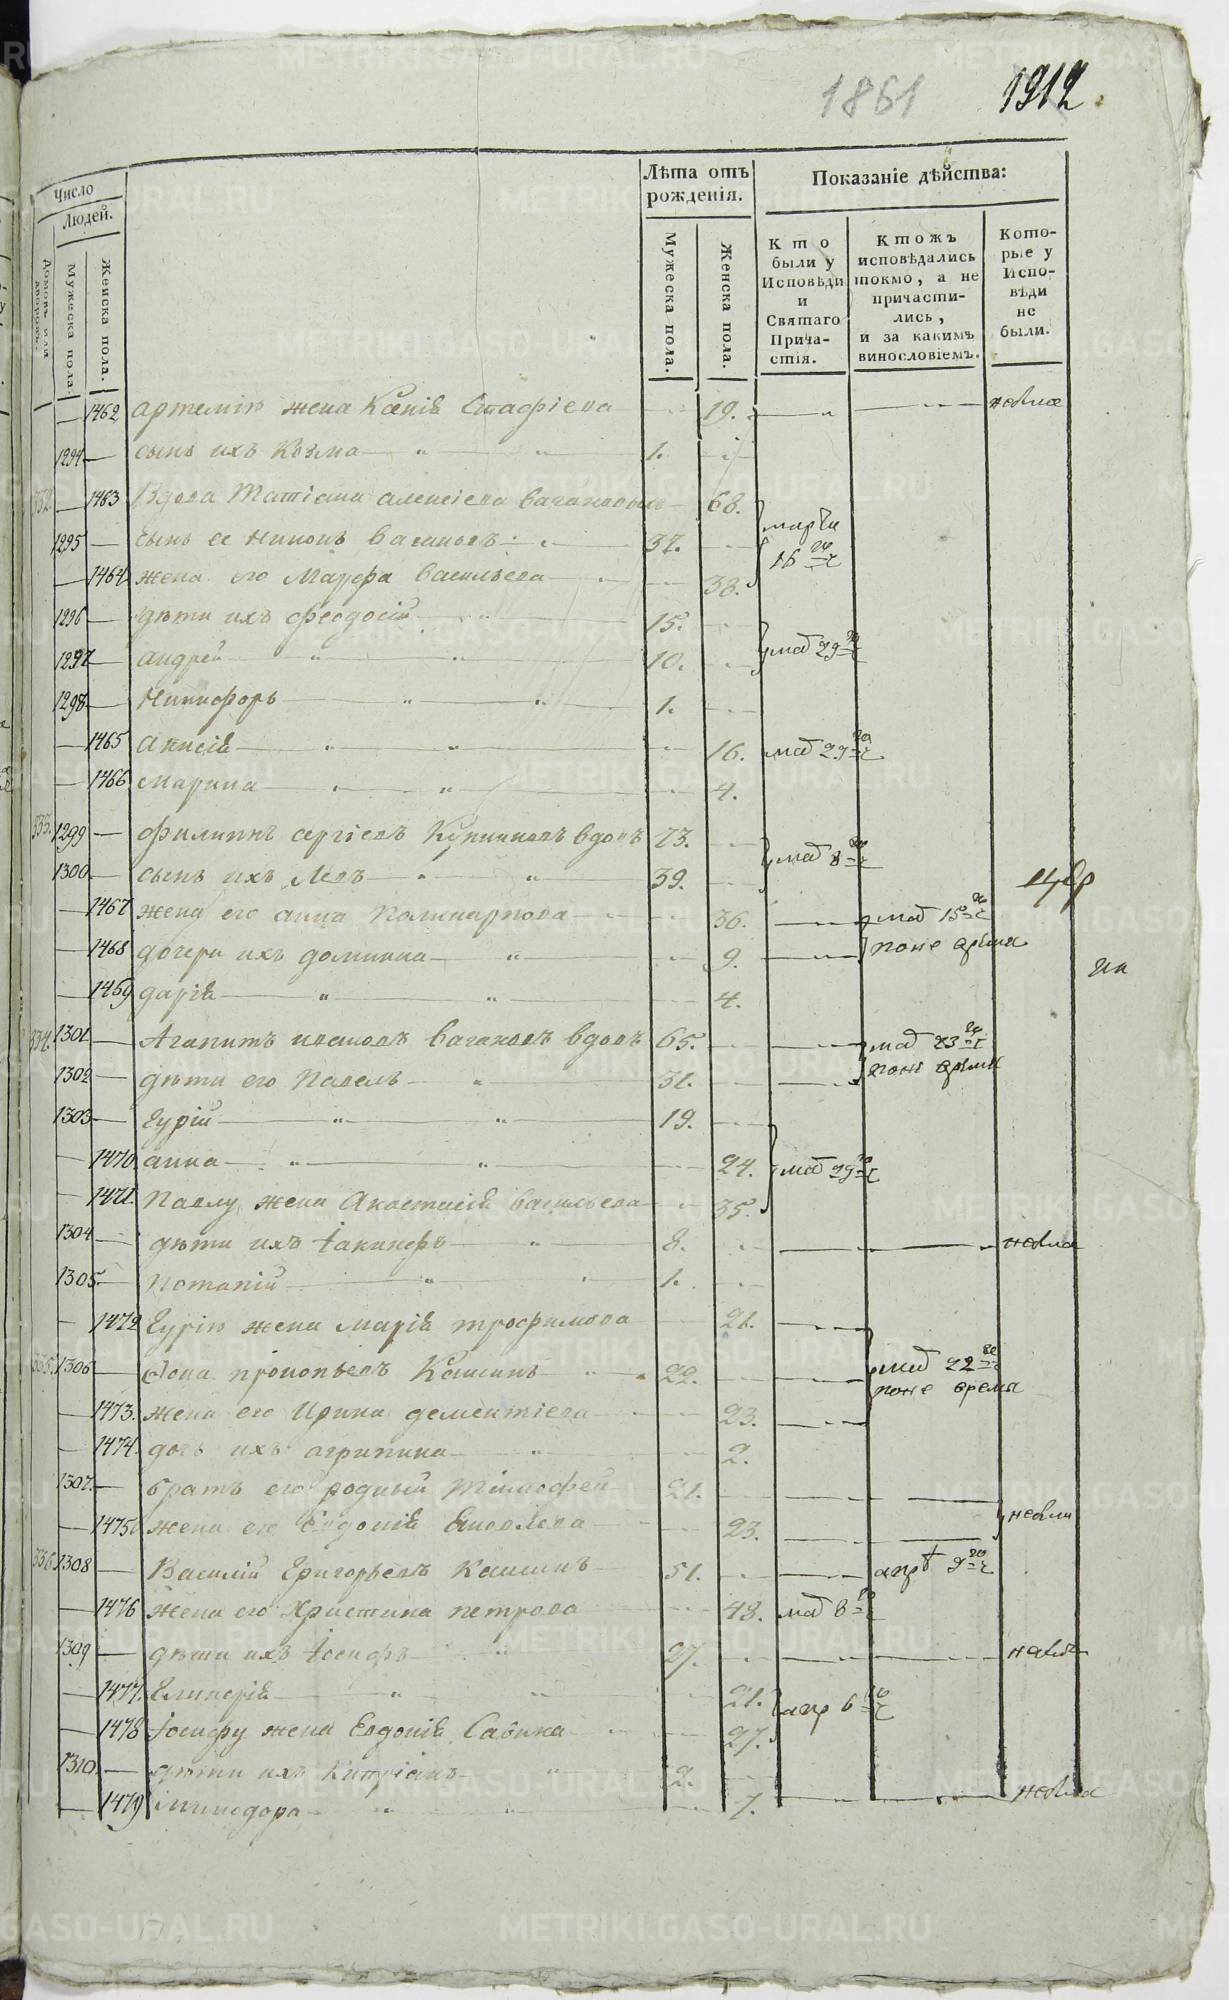 1861 1912.
Число Людей.
Домовъ или дворовъ.
Мужеска пола.
Женска пола.
Лѣта отъ рожденія.
Мужеска пола.
Женска пола.
Показаніе дѣйства:
Кто были у Исповѣди и Святаго Причастія.
Ктожъ исповѣдались токмо, а не причастились, и за какимъ винословіемъ.
Которые у Исповѣди не были.
1462 Артемію жена Ксенія Стафіева 19. небыла
1294 сынъ ихъ Козма 1.
332. 1463 Вдова Татіана Алексіева Ваганов 68.
1295 сынъ ее Никонъ Васильевъ 37. марта 16 го
1464 жена его Марфа Васильева 38.
1296 дѣти их Феодосій 15.
1297 Андрей 10. маія 29 го
1298 Никифоръ 1.
1465 Аксиія 16. маія 29 го
1466 Марина 4.
333. 1299 Филиппъ Сергіевъ вдовъ 73.
1300 сынъ ихъ Левъ 39. маія 8 го
1467 жена его Анна Поликарпова 36. маія 15 го
1468 дочери ихъ Домника 9. поне время
1469 Дарія 4.
334. 1301 Агапитъ Ивановъ Вагановъ вдовъ 65. маія 23 го
1302 дѣти его Павелъ 31. поне время
1303 Гурій 19.
1470 Анна 24. маія 29 го
1471. Павлу жена Анастасія Васильева 35.
1304 дѣти ихъ Іакинфъ 8. небыл
1305. Потапій 1.
1472 Гурію жена Марія Трофимова 21.
335. 1306 Иона Прокопьевъ Кашинъ 22. маія 22 го
поне время
1473. жена его Ирина Дементіева 23.
1474. дочь ихъ Агрипина 2.
1307. братъ его родный Тимофей 21.
1475 жена его Евдокія Яковлева 23. небыли
336. 1308 Василій Григорьевъ Кашинъ 51. апр 9 го
1476 жена его Христина Петрова 48. маія 8 го
1309 дѣти ихъ Іосифъ 27. небылъ
1477. Гликерія 21. апр 6 го
1478 Іосифу жена Евдокія Савина 27.
1310. дѣти ихъ Кипріанъ 2.
1479 Минодора 7. небыла
METRIKI.GASO-URAL.RU